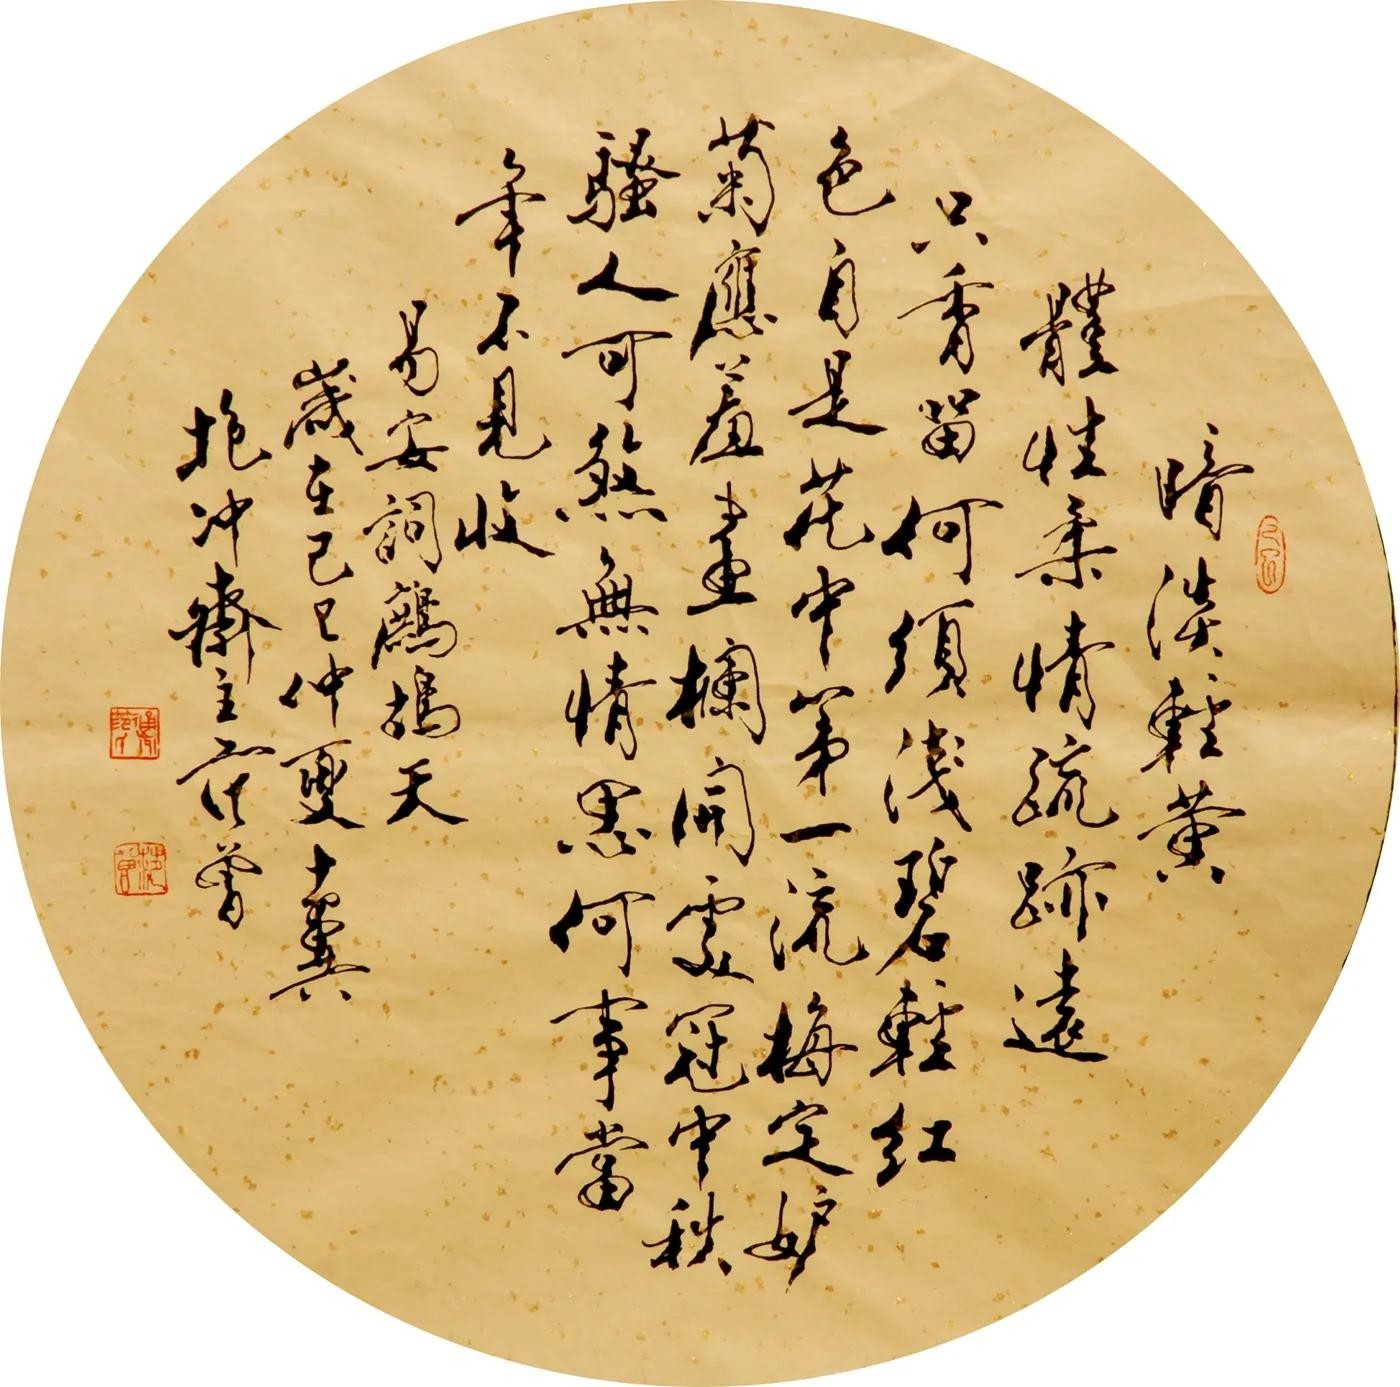 暗淡輕黃
體性柔情疏跡遠
只香留何須淺碧輕紅
色自是花中第一流梅定妒
菊應羞畫欄開處冠中秋
騷人可煞無情思何事當
年不見收
易安詞鷓鴣天
歲在己巳仲夏十翼
抱冲齋主范曾
范曾